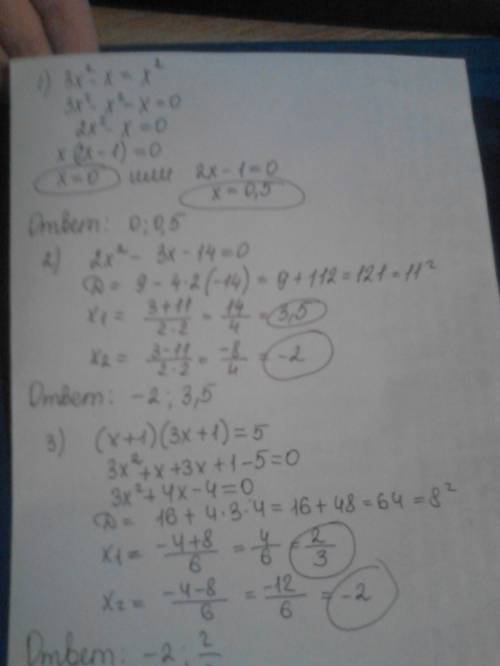 1) 3x² - x = x²
3x² - x² - x = 0
2x² - x = 0
x(2x - 1) = 0
x = 0 или 2x - 1 = 0
x = 0,5
Ответ: 0; 0,5
2) 2x² - 3x - 14 = 0
D = 9 - 4·2(-14) = 9 + 112 = 121 = 11²
x₁ = (3+11)/(2·2) = 14/4 = 3,5
x₂ = (3-11)/(2·2) = -8/4 = -2
Ответ: -2; 3,5
3) (x+1)(3x+1) = 5
3x² + x + 3x + 1 - 5 = 0
3x² + 4x - 4 = 0
D = 16 + 4·3·4 = 16 + 48 = 64 = 8²
x₁ = (-4+8)/6 = 4/6 = 2/3
x₂ = (-4-8)/6 = -12/6 = -2
Ответ: -2; 2/